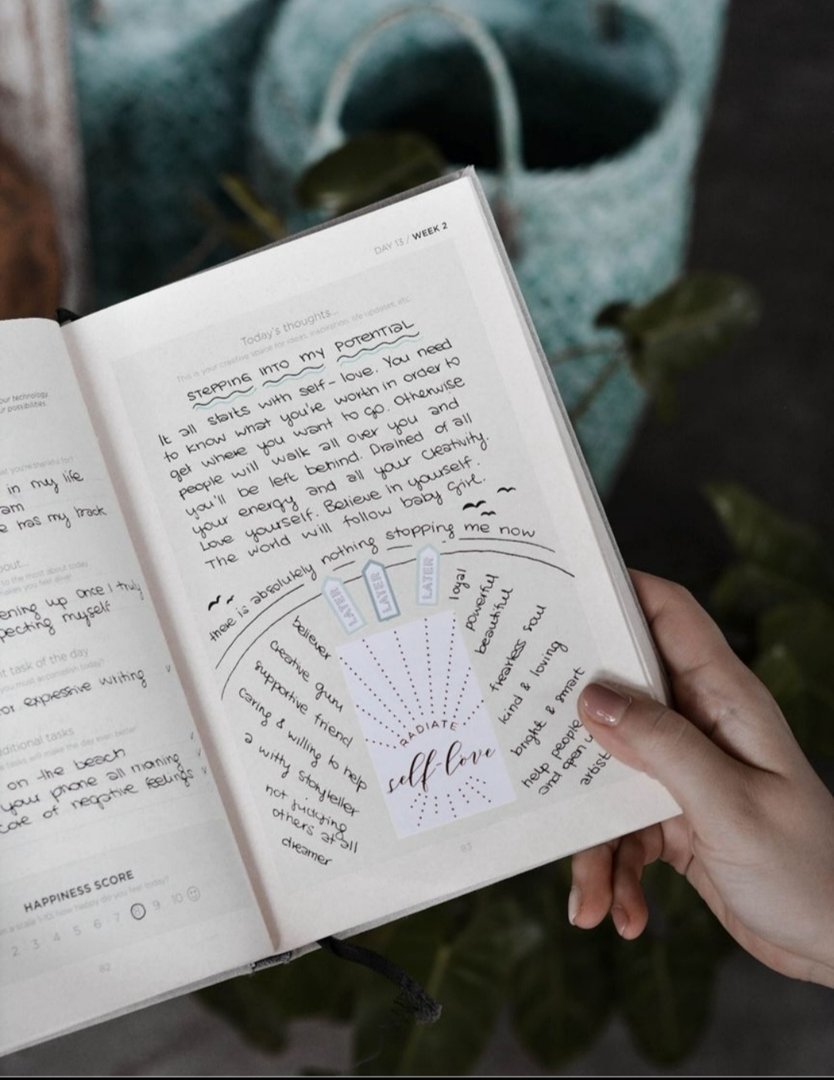 our technology,
our possibilities.
what you're thankful for?
in my life
am
e has my back
out...
to the most about today
makes you feel alive!
ening up once I truly
pecting myself
t task of the day
you must accomplish today?
or expressive writing
dditional tasks
tasks will make the day even better
on the beach
your phone all morning
care of negative feelings
HAPPINESS SCORE
n a scale 1-10, how happy do you feel today?
2 3 4 5 6 7 9 10
82
DAY 13 / WEEK 2
Today's thoughts...
This is your creative space for ideas, inspiration, life updates, etc.
STEPPING INTO MY POTENTIAL
It all starts with self-love. You need
to know what you're worth in order to
get where you want to go. Otherwise
people will walk all over you and
you'll be left behind. Drained of all
your energy and all your creativity.
Love yourself. Believe in yourself.
The world will follow baby girl.
there is absolutely nothing stopping me now
LATER
LATER
LATER
believer
creative guru
supportive friend
caring & willing to help
a witty storyteller
not judging
others at all
dreamer
RADIATE
self-love
loyal
powerful
beautiful
fearless soul
kind & loving
bright & smart
help people
and open
artist
83